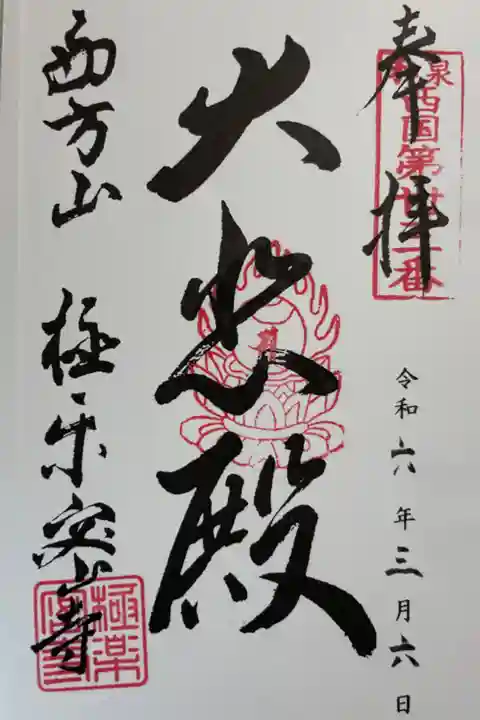 奉拝
泉西国第卅二番
令和六年三月六日
大悲殿
西方山 極楽密寺
極楽密寺